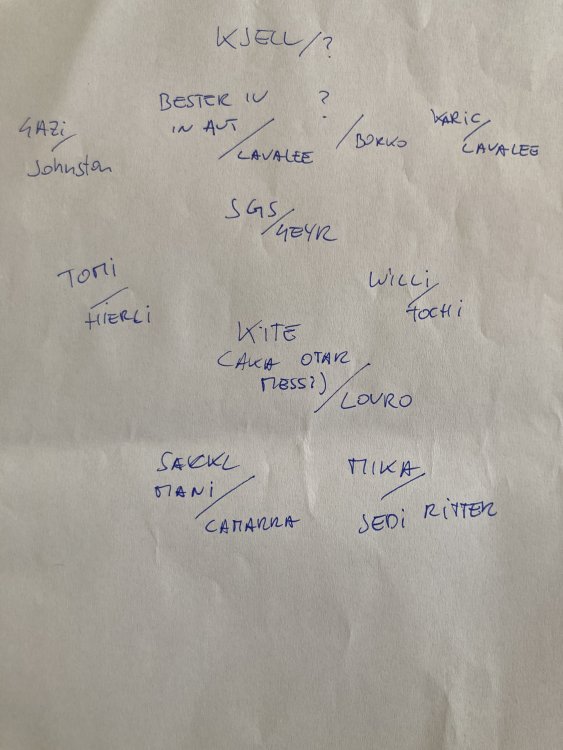 KJELL/?
BESTER IV ?
IN AUT / LAVALEE
/ BORKO
KARIC / LAVALEE
GAZI / Johnston
SGS / GEYR
TOMI / HIERLI
WILLI / TOCHI
KITE
(AKA OTAR
MESSI) / LOVRO
SAKKL
MANI / CAMARRA
MIKA / SEDI RITTER